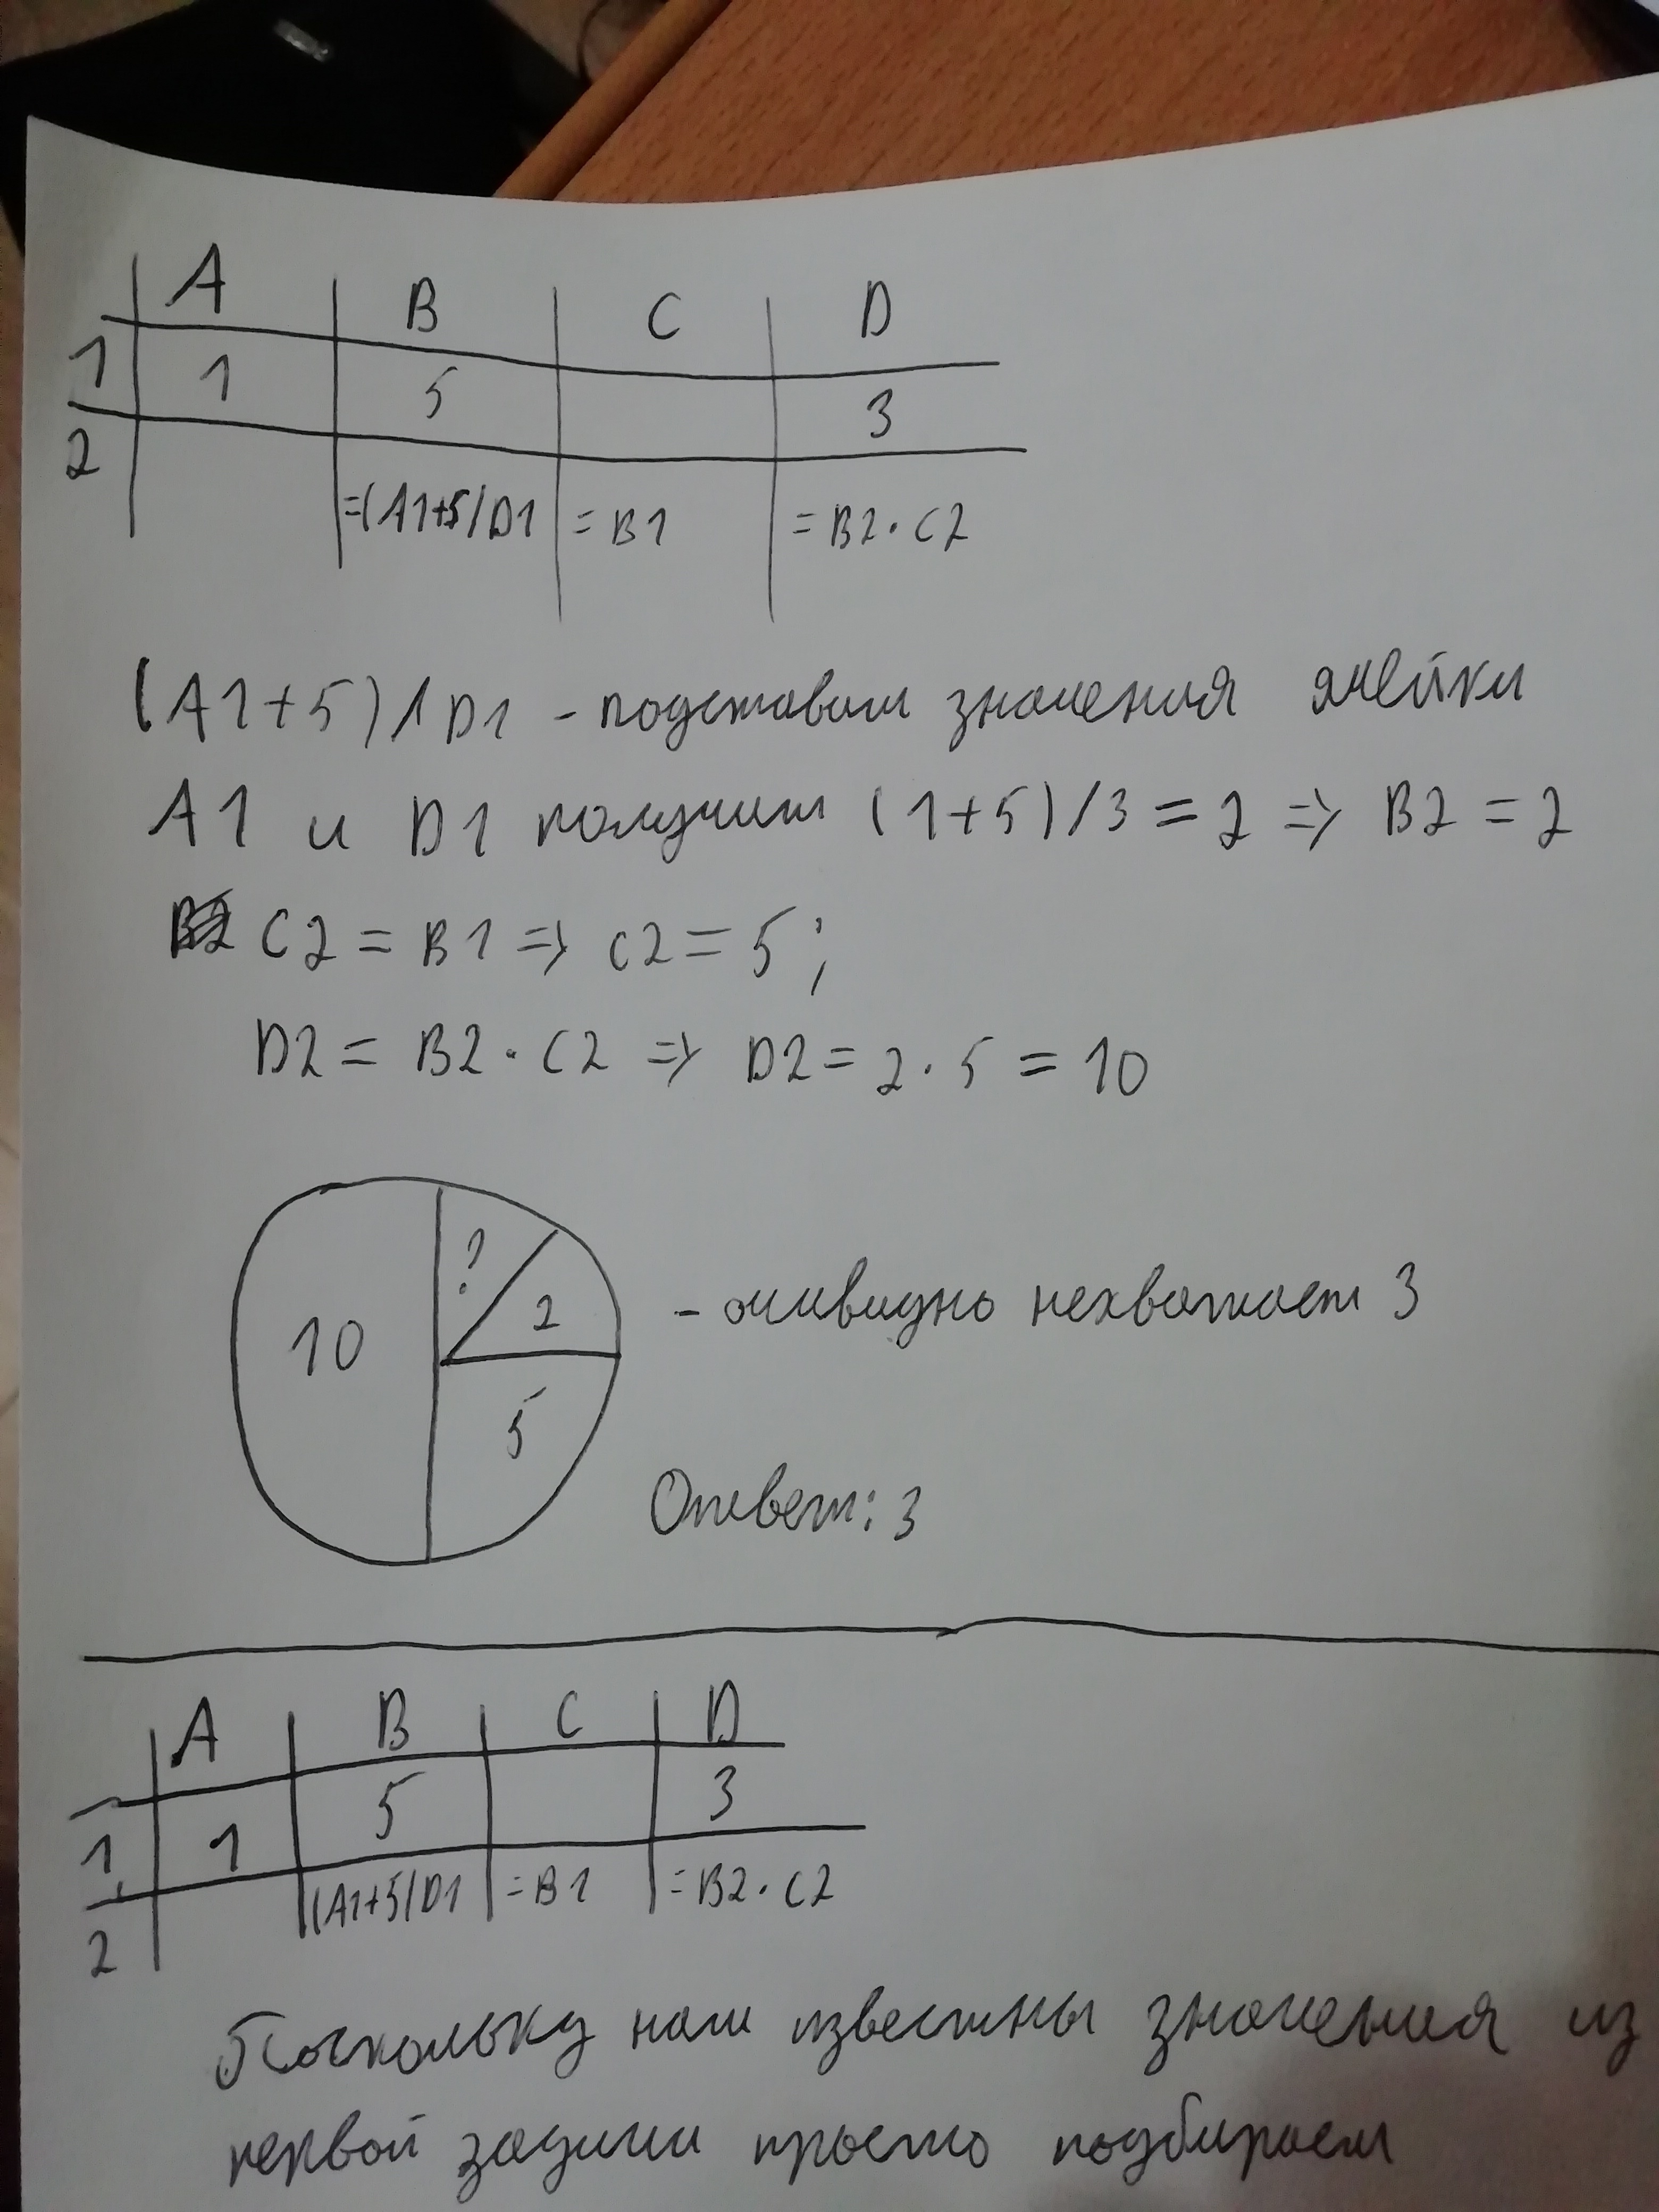 A B C D
1 1 5 3
2 =(A1+5)/D1 =B1 =B2·C2
(A1+5)/D1 - подставим значения ячейки
A1 и D1 получим (1+5)/3=2 => B2=2
C2=B1 => C2=5;
D2=B2·C2 => D2=2·5=10
10 ? 2 5
- очевидно нехватает 3
Ответ: 3
A B C D
1 1 5 3
2 (A1+5)/D1 =B1 =B2·C2
Поскольку нам известны значения из
первой задачи просто подбираем